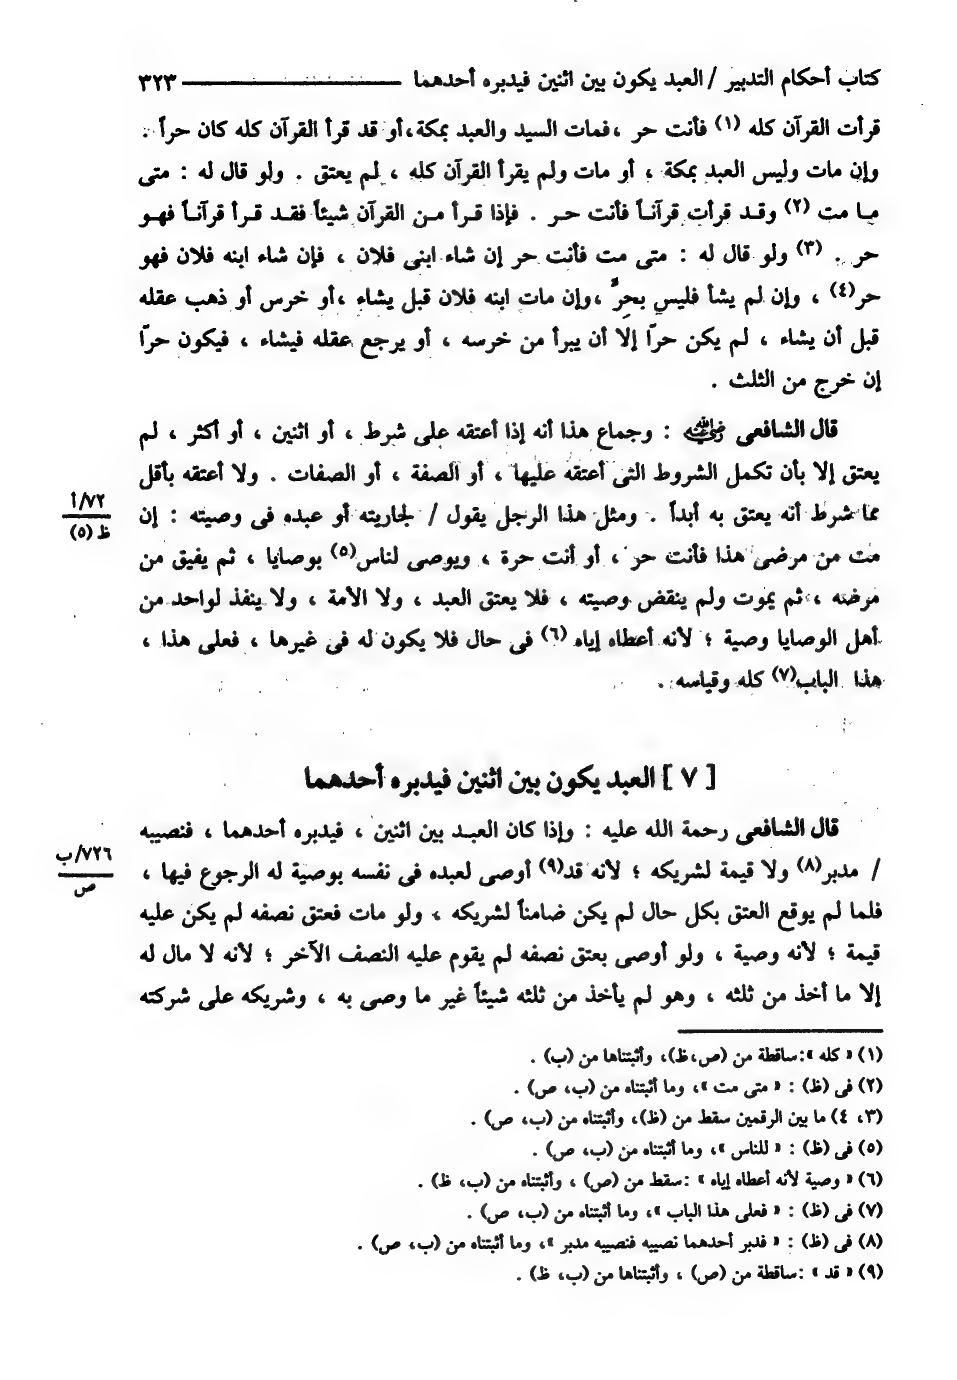 كتاب أحكام التدبير / العبد يكون بين اثنين فيدبره أحدهما ٣٢٣
قرأت القرآن كله (١) فأنت حر ، فمات السيد والعبد بمكة، أو قد قرأ القرآن كله كان حراً .
وإن مات وليس العبد بمكة ، أو مات ولم يقرأ القرآن كله ، لم يعتق . ولو قال له : متى
ما مت (٢) وقد قرأت قرآناً فأنت حر . فإذا قرأ من القرآن شيئاً فقد قرأ قرآناً فهو
حر . (٣) ولو قال له : متى مت فأنت حر إن شاء ابنى فلان ، فإن شاء ابنه فلان فهو
حر(٤) ، وإن لم يشأ فليس بحرٍّ ، وإن مات ابنه فلان قبل يشاء ، أو خرس أو ذهب عقله
قبل أن يشاء ، لم يكن حراً إلا أن يبرأ من خرسه ، أو يرجع عقله فيشاء ، فيكون حراً
إن خرج من الثلث .
قال الشافعى رضي الله عنه : وجماع هذا أنه إذا أعتقه على شرط ، أو اثنين ، أو أكثر ، لم
يعتق إلا بأن تكمل الشروط التى أعتقه عليها ، أو الصفة ، أو الصفات . ولا أعتقه بأقل
مما شرط أنه يعتق به أبداً . ومثل هذا الرجل يقول / لجاريته أو عبده فى وصيته : إن
مت من مرضى هذا فأنت حر ، أو أنت حرة ، ويوصى لناس(٥) بوصايا ، ثم يفيق من
مرضه ، ثم يموت ولم ينقض وصيته ، فلا يعتق العبد ، ولا الأمة ، ولا ينفذ لواحد من
أهل الوصايا وصية ؛ لأنه أعطاه إياه (٦) فى حال فلا يكون له فى غيرها ، فعلى هذا ،
هذا الباب(٧) كله وقياسه .
٧٢/أ
ظ (٥)
[ ٧ ] العبد يكون بين اثنين فيدبره أحدهما
قال الشافعى رحمة الله عليه : وإذا كان العبد بين اثنين ، فيدبره أحدهما ، فنصيبه
/ مدبر(٨) ولا قيمة لشريكه ؛ لأنه قد(٩) أوصى لعبده فى نفسه بوصية له الرجوع فيها ،
فلما لم يوقع العتق بكل حال لم يكن ضامناً لشريكه ، ولو مات فعتق نصفه لم يكن عليه
قيمة ؛ لأنه وصية ، ولو أوصى بعتق نصفه لم يقوم عليه النصف الآخر ؛ لأنه لا مال له
إلا ما أخذ من ثلثه ، وهو لم يأخذ من ثلثه شيئاً غير ما وصى به ، وشريكه على شركته
٧٢٦/ب
ص
(١) « كله »: ساقطة من (ص، ظ)، وأثبتناها من (ب) .
(٢) فى (ظ) : « متى مت »، وما أثبتناه من (ب، ص) .
(٣، ٤) ما بين الرقمين سقط من (ظ)، وأثبتناه من (ب، ص) .
(٥) فى (ظ) : « للناس »، وما أثبتناه من (ب، ص) .
(٦) « وصية لأنه أعطاه إياه » : سقط من (ص) ، وأثبتناه من (ب، ظ) .
(٧) فى (ظ) : « فعلى هذا الباب »، وما أثبتناه من (ب، ص) .
(٨) فى (ظ) : « فدبر أحدهما نصيبه فنصيبه مدبر »، وما أثبتناه من (ب، ص) .
(٩) « قد » : ساقطة من (ص) ، وأثبتناها من (ب، ظ) .